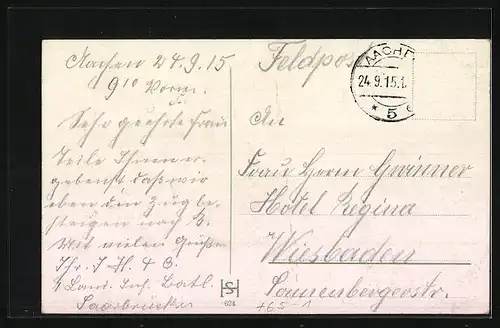 Aachen 24.9.15
9 10 Vorm.
Sehr geehrte Frau
Teile Ihnen er-
gebenst daß wir
eben den Zug be-
steigen nach
Mit vielen Grüßen
Ihr. J H. & C.
Land. Inf. Batl.
Saarbrücken
Feldpost
AACHE
24.9.15.1
* 5 c
An
Frau Herm Gwinner
Hotel Regina
Wiesbaden
Sonnenbergerstr.
HS
624
+65-1